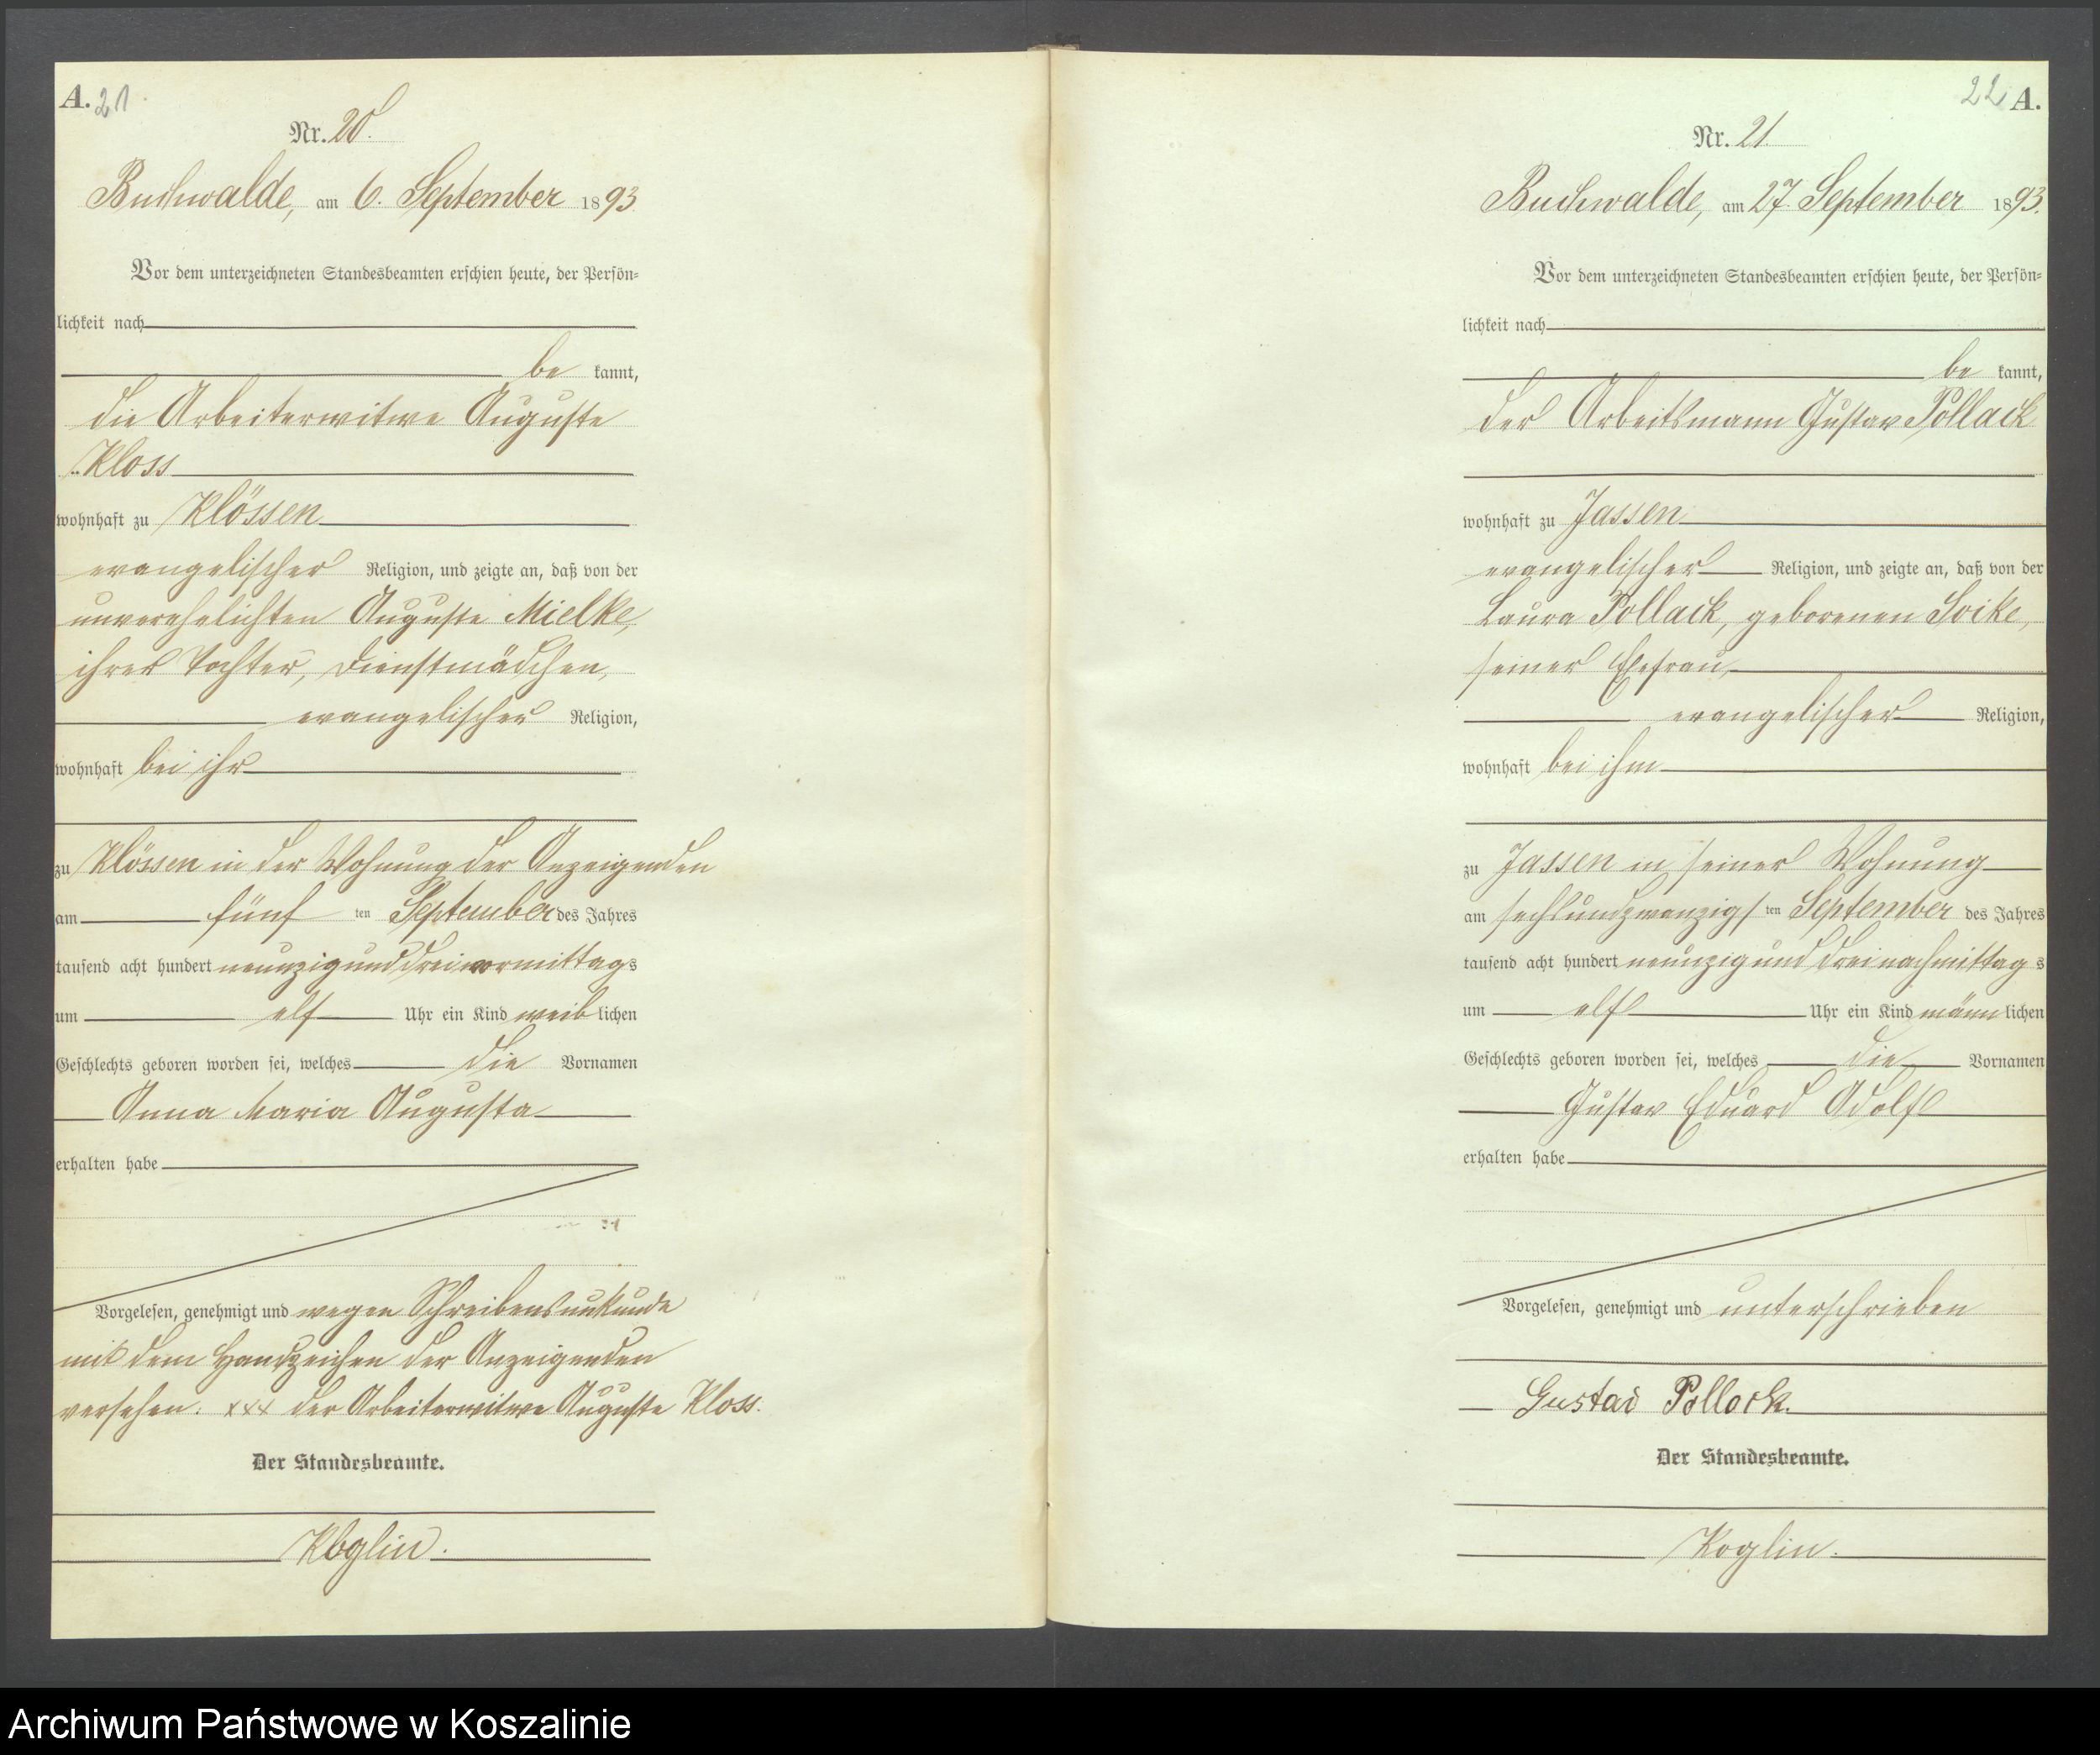 A. 21
Nr. 20.
Buchwalde, am 6. September 1893.
Vor dem unterzeichneten Standesbeamten erschien heute, der Persön-
lichkeit nach
be kannt,
die Arbeiterwitwe Auguste
Kloss
wohnhaft zu Klössen
evangelischer Religion, und zeigte an, daß von der
unverehelichten Auguste Mielke,
ihrer Tochter, Dienstmädchen,
evangelischer Religion,
wohnhaft bei ihr
zu Klössen in der Wohnung der Anzeigenden
am fünf ten September des Jahres
tausend acht hundert neunzig und drei vormittags
um elf Uhr ein Kind weiblichen
Geschlechts geboren worden sei, welches die Vornamen
Anna Maria Augusta
erhalten habe
Vorgelesen, genehmigt und wegen Schreibensunkunde
mit dem Handzeichen der Anzeigenden
versehen. xxx der Arbeiterwitwe Auguste Kloss.
Der Standesbeamte.
Koglin.
22 A.
Nr. 21.
Buchwalde, am 27. September 1893.
Vor dem unterzeichneten Standesbeamten erschien heute, der Persön-
lichkeit nach
be kannt,
der Arbeitsmann Gustav Pollack
wohnhaft zu Jassen
evangelischer Religion, und zeigte an, daß von der
Laura Pollack, geborenen Soike,
seiner Ehefrau,
evangelischer Religion,
wohnhaft bei ihm
zu Jassen in seiner Wohnung
am sechsundzwanzigs ten September des Jahres
tausend acht hundert neunzig und drei nachmittags
um elf Uhr ein Kind männlichen
Geschlechts geboren worden sei, welches die Vornamen
Gustav Eduard Adolf
erhalten habe
Vorgelesen, genehmigt und unterschrieben
Gustav Pollock.
Der Standesbeamte.
Koglin.
Archiwum Państwowe w Koszalinie